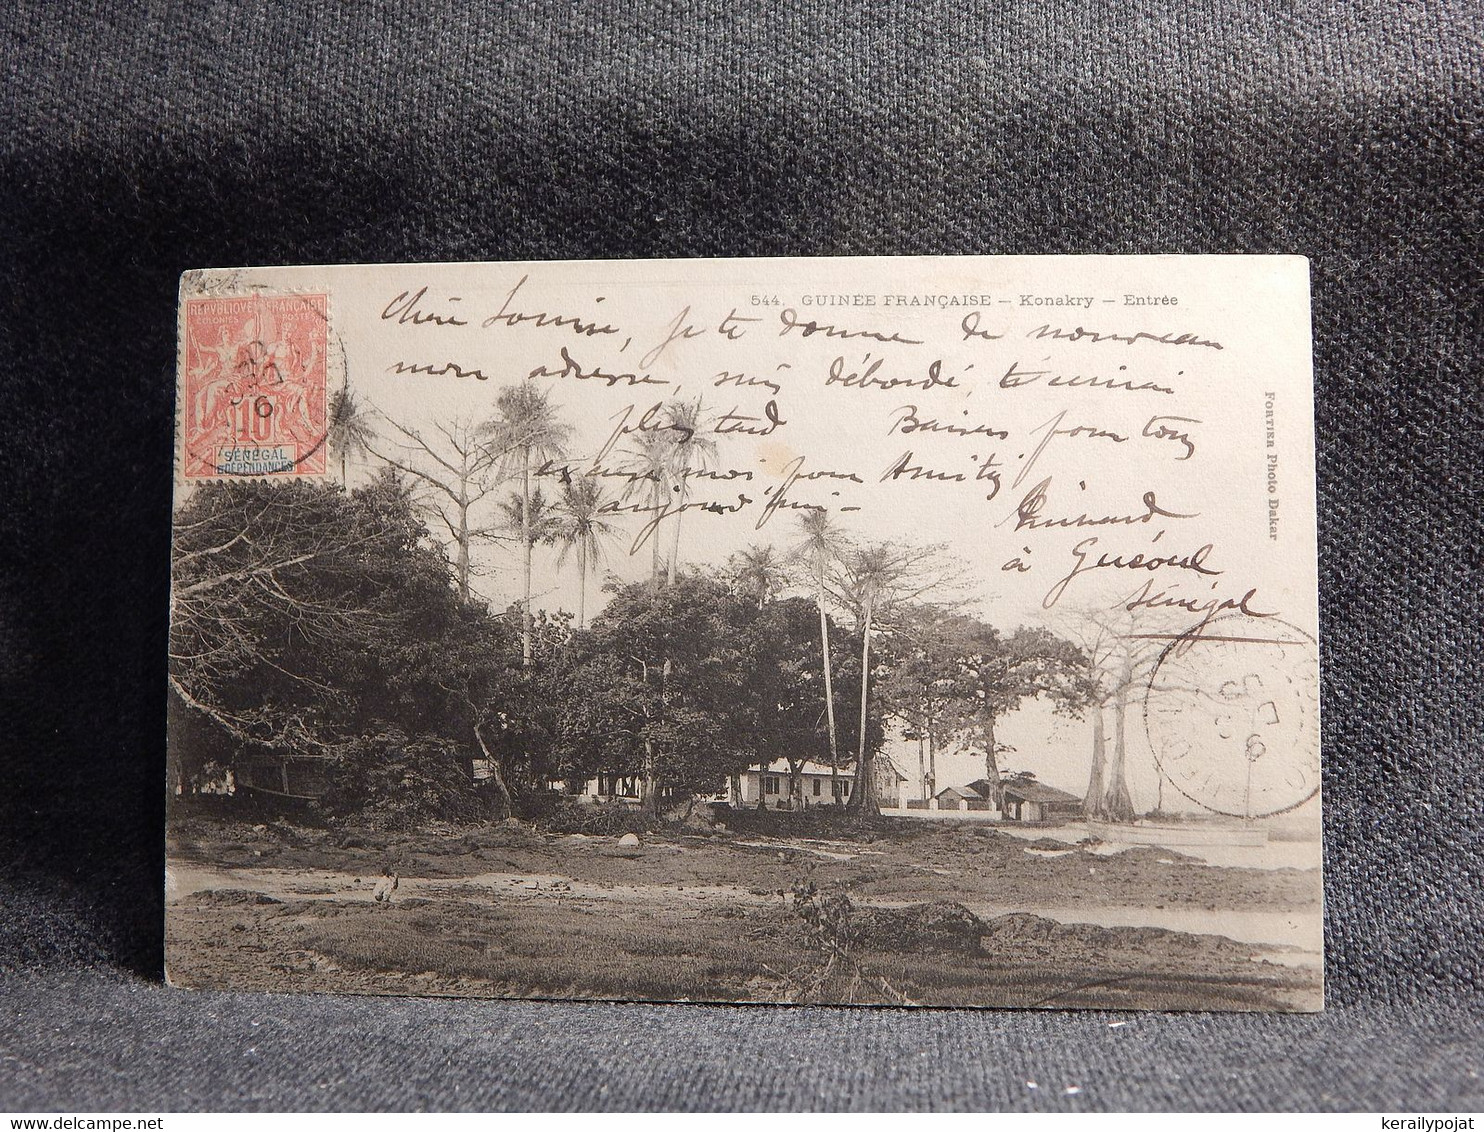 544. GUINÉE FRANÇAISE — Konakry — Entrée
REPVBLIQVE FRANÇAISE
COLONIES POSTES
10
SÉNÉGAL
& DÉPENDANCES
Chère Louise, je te donne de nouveau
mon adresse, suis débordé, t'écrirai
plus tard Baisers pour tous
excuse moi pour
aujourd'hui —
à
Sénégal
FORTIER Photo Dakar
kerailypojat